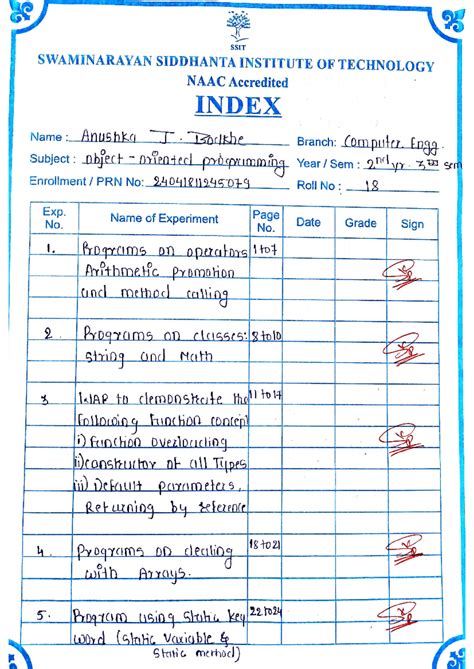 SSIT
SWAMINARAYAN SIDDHANTA INSTITUTE OF TECHNOLOGY
NAAC Accredited
INDEX
Name : Anushka J. Bodkhe Branch: Computer Engg.
Subject : object-oriented programming Year / Sem : 2nd yr. 3rd sem
Enrollment / PRN No: 24041811245079 Roll No : 18
Exp. No. Name of Experiment Page No. Date Grade Sign
1. Programs on operators 1 to 7
Arithmetic promotion
and method calling
2. Programs on classes: 8 to 10
String and Math
3 WAP to demonstrate the 11 to 17
following function concept
i) Function overloading
ii) constructor of all Types
iii) Default parameters,
Returning by reference
4. Programs on dealing 18 to 21
with Arrays.
5. Program using static key 22 to 24
word (static variable &
static method)